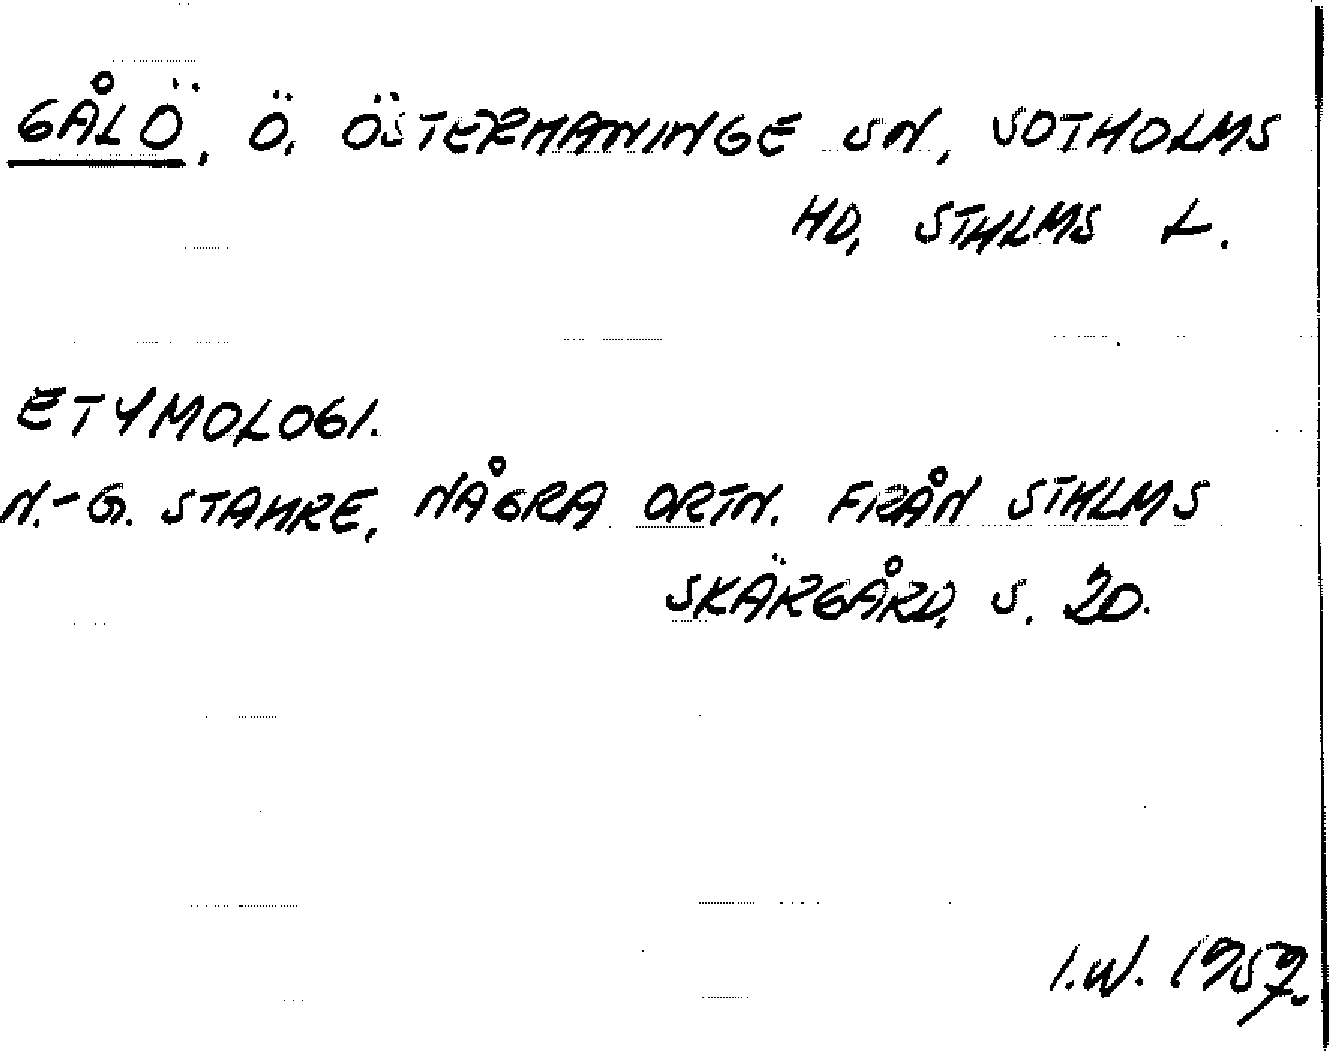 GÅLÖ, Ö, ÖSTERHANINGE SN, SOTHOLMS
HD, STHLMS L.
ETYMOLOGI.
N.-G. STAHRE, NÅGRA ORTN. FRÅN STHLMS
SKÄRGÅRD, S. 20.
I.W. 1957.